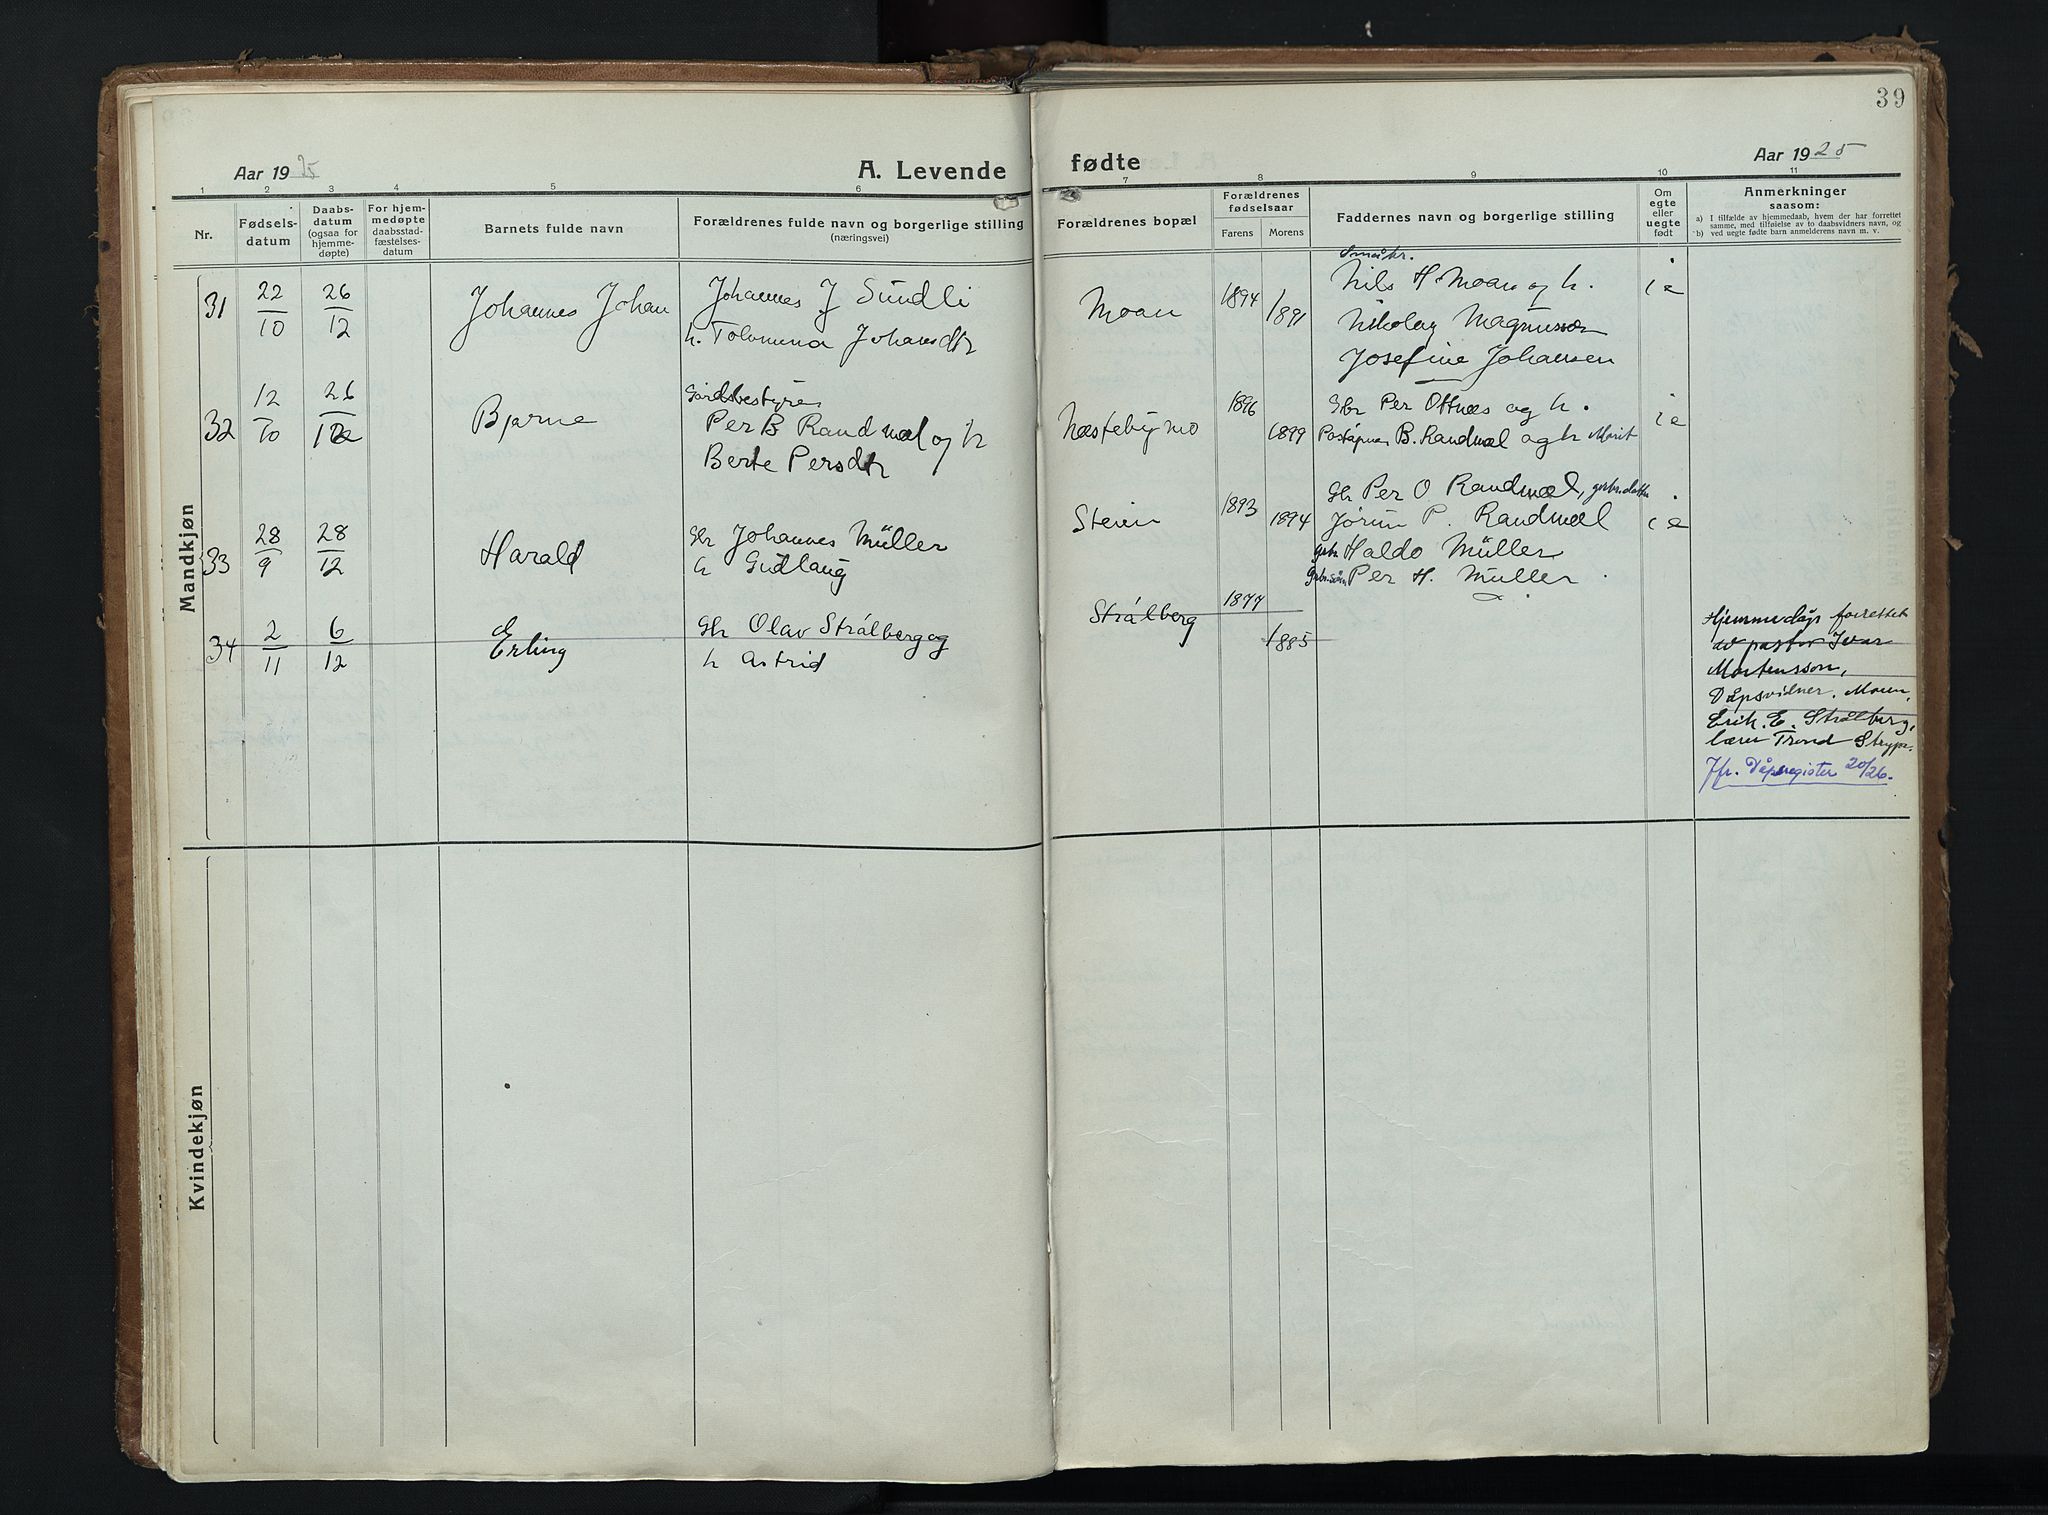 39
Aar 1925 A. Levende fødte Aar 1925
1 2 3 4 5 6 7 8 9 10 11
Nr. Fødsels-datum Daabs-datum (ogsaa for hjemme-døpte) For hjem-medøpte daabsstad-fæstelses-datum Barnets fulde navn Forældrenes fulde navn og borgerlige stilling (næringsvei) Forældrenes bopæl Forældrenes fødselsaar Farens Morens Faddernes navn og borgerlige stilling Om egte eller uegte født Anmerkninger saasom:
a) I tilfælde av hjemmedaab, hvem der har forrettet samme, med tilføielse av to daabsvidners navn, og
b) ved uegte fødte barn anmelderens navn m. v.
Mandkjøn
31 22/10 26/12 Johannes Johan Johannes J Sundli Moan 1894 1891 Småbr. Nils H. Moan og h. i e
h. Tolomina Johansdtr Nikolay Magnusson
Josefine Johansen
32 12/10 26/12 Bjarne Gårdsbestyrer Næstebymo 1896 1899 Gbr Per Ottnes og h. i e
Per B Randmæl og h B. Randmæl og h Marit
Berte Persdtr
33 28/9 28/12 Harald Gbr Johannes Müller Steien 1893 1894 Gbr Per O Randmæl, gbr.datter i e
h Gudlaug Jørun P. Randmæl
gbr Haldo Müller
Gbr.søn Per H. Müller
34 2/11 6/12 Erling Gbr Olav Strålberg og Strålberg 1877 1885
h Astrid
Hjemmedåp forrettet
av pastor Ivar
Mortensson,
Dåpsvidner.
Erik. E. Strålberg,
lærer Trond
Jfr. Dåpsregister 20/26.
Kvindekjøn